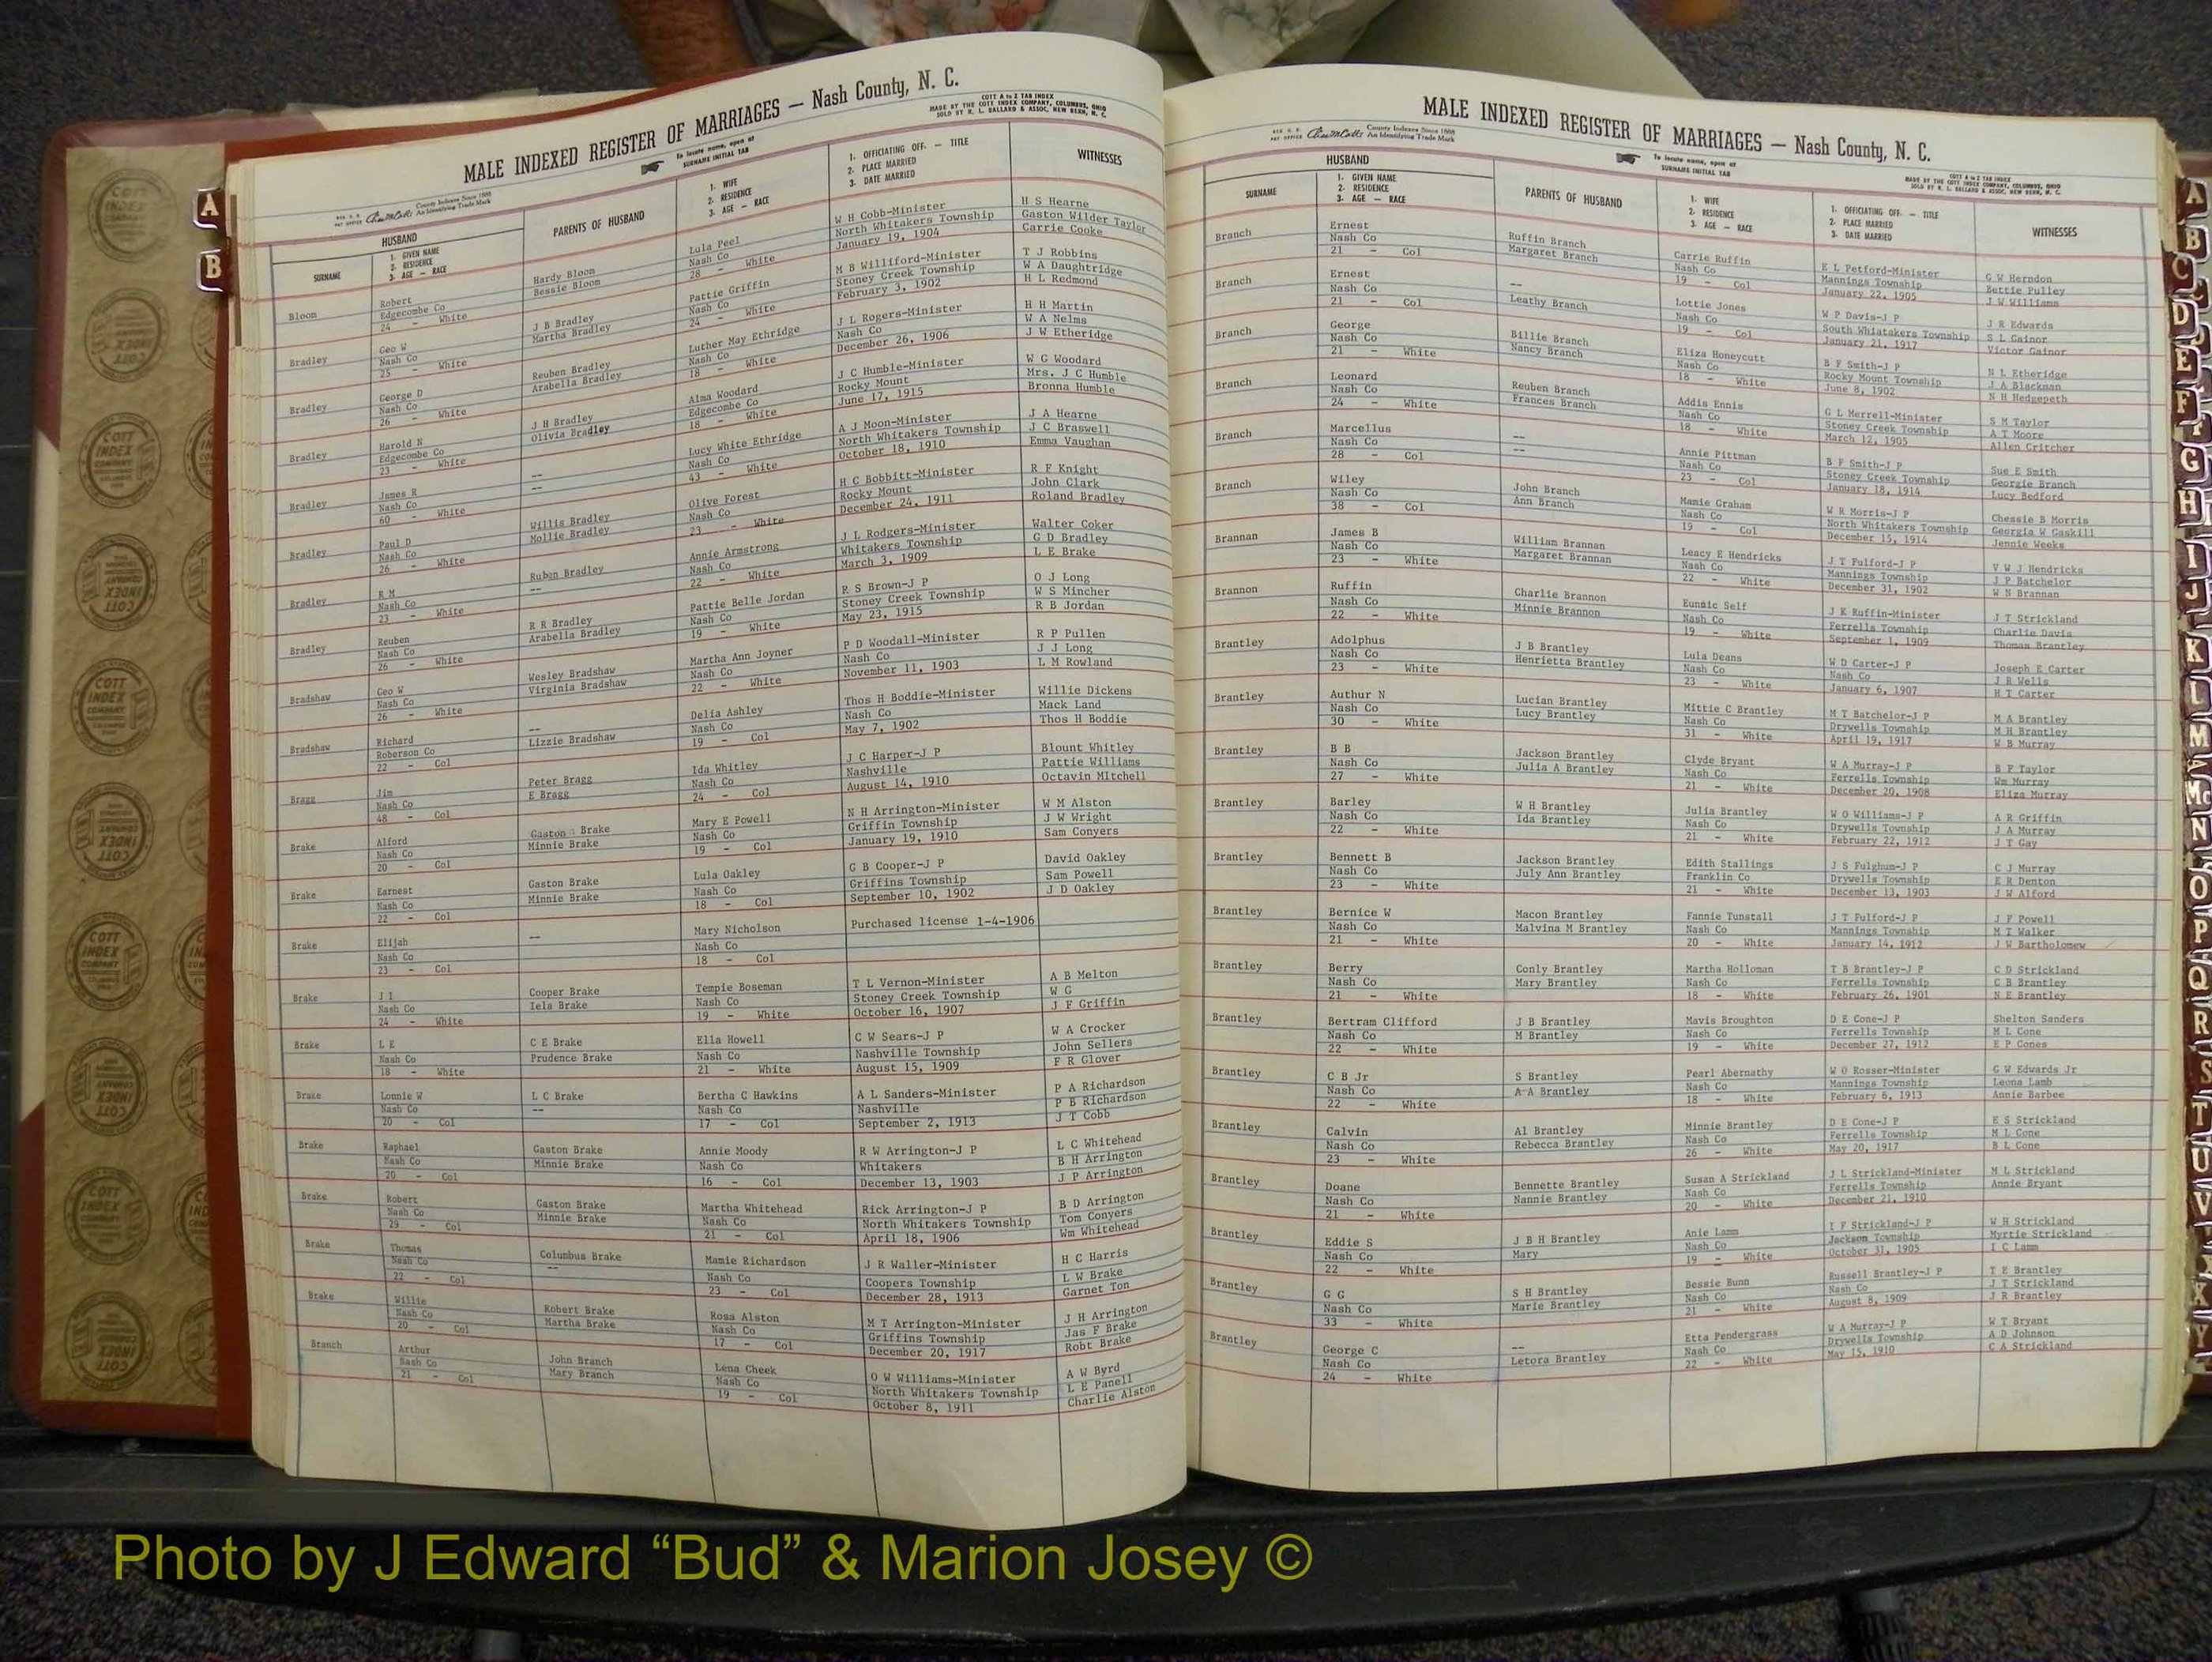 MALE INDEXED REGISTER OF MARRIAGES — Nash County, N. C.
COTT A to Z TAB INDEX
MADE BY THE COTT INDEX COMPANY, COLUMBUS, OHIO
SOLD BY R. L. BALLARD & ASSOC. NEW BERN, N. C.
County Indexes Since 1888
An Identifying Trade Mark
To locate name, open at
SURNAME INITIAL TAB
HUSBAND
SURNAME
1. GIVEN NAME
2. RESIDENCE
3. AGE — RACE
PARENTS OF HUSBAND
1. WIFE
2. RESIDENCE
3. AGE — RACE
1. OFFICIATING OFF. — TITLE
2. PLACE MARRIED
3. DATE MARRIED
WITNESSES
Bloom Robert Hardy Bloom Lula Peel W H Cobb-Minister H S Hearne
Edgecombe Co Bessie Bloom Nash Co North Whitakers Township Gaston Wilder Taylor
24 - White 28 - White January 19, 1904 Carrie Cooke
Bradley Geo W J B Bradley Pattie Griffin M B Williford-Minister T J Robbins
Nash Co Martha Bradley Nash Co Stoney Creek Township W A Daughtridge
25 - White 24 - White February 3, 1902 H L Redmond
Bradley George D Reuben Bradley Luther May Ethridge J L Rogers-Minister H H Martin
Nash Co Arabella Bradley Nash Co Nash Co W A Nelms
26 - White 18 - White December 26, 1906 J W Etheridge
Bradley Harold N J H Bradley Alma Woodard J C Humble-Minister W G Woodard
Edgecombe Co Olivia Bradley Edgecombe Co Rocky Mount Mrs. J C Humble
23 - White 18 - White June 17, 1915 Bronna Humble
Bradley James R -- Lucy White Ethridge A J Moon-Minister J A Hearne
Nash Co -- Nash Co North Whitakers Township J C Braswell
60 - White 43 - White October 18, 1910 Emma Vaughan
Bradley Paul D Willis Bradley Olive Forest H C Bobbitt-Minister R F Knight
Nash Co Mollie Bradley Nash Co Rocky Mount John Clark
26 - White 23 - White December 24, 1911 Roland Bradley
Bradley R M Ruban Bradley Annie Armstrong J L Rodgers-Minister Walter Coker
Nash Co -- Nash Co Whitakers Township G D Bradley
23 - White 22 - White March 3, 1909 L E Brake
Bradley Reuben R R Bradley Pattie Belle Jordan R S Brown-J P O J Long
Nash Co Arabella Bradley Nash Co Stoney Creek Township W S Mincher
26 - White 19 - White May 23, 1915 R B Jordan
Bradshaw Geo W Wesley Bradshaw Martha Ann Joyner P D Woodall-Minister R P Pullen
Nash Co Virginia Bradshaw Nash Co Nash Co J J Long
26 - White 22 - White November 11, 1903 L M Rowland
Bradshaw Richard -- Delia Ashley Thos H Boddie-Minister Willie Dickens
Roberson Co Lizzie Bradshaw Nash Co Nash Co Mack Land
22 - Col 19 - Col May 7, 1902 Thos H Boddie
Bragg Jim Peter Bragg Ida Whitley J C Harper-J P Blount Whitley
Nash Co E Bragg Nash Co Nashville Pattie Williams
48 - Col 24 - Col August 14, 1910 Octavin MItchell
Brake Alford Gaston Brake Mary E Powell N H Arrington-Minister W M Alston
Nash Co Minnie Brake Nash Co Griffin Township J W Wright
20 - Col 19 - Col January 19, 1910 Sam Conyers
Brake Earnest Gaston Brake Lula Oakley G B Cooper-J P David Oakley
Nash Co Minnie Brake Nash Co Griffins Township Sam Powell
22 - Col 18 - Col September 10, 1902 J D Oakley
Brake Elijah -- Mary Nicholson Purchased license 1-4-1906
Nash Co Nash Co
23 - Col 18 - Col
Brake J I Cooper Brake Tempie Boseman T L Vernon-Minister A B Melton
Nash Co Iela Brake Nash Co Stoney Creek Township W G
24 - White 19 - White October 16, 1907 J F Griffin
Brake L E C E Brake Ella Howell C W Sears-J P W A Crocker
Nash Co Prudence Brake Nash Co Nashville Township John Sellers
18 - White 21 - White August 15, 1909 F R Glover
Brake Lonnie W L C Brake Bertha C Hawkins A L Sanders-Minister P A Richardson
Nash Co -- Nash Co Nashville P B Richardson
20 - Col 17 - Col September 2, 1913 J T Cobb
Brake Raphael Gaston Brake Annie Moody R W Arrington-J P L C Whitehead
Nash Co Minnie Brake Nash Co Whitakers B H Arrington
20 - Col 16 - Col December 13, 1903 J P Arrington
Brake Robert Gaston Brake Martha Whitehead Rick Arrington-J P B D Arrington
Nash Co Minnie Brake Nash Co North Whitakers Township Tom Conyers
29 - Col 21 - Col April 18, 1906 Wm Whitehead
Brake Thomas Columbus Brake Mamie Richardson J R Waller-Minister H C Harris
Nash Co -- Nash Co Coopers Township L W Brake
22 - Col 23 - Col December 28, 1913 Garnet Ton
Brake Willie Robert Brake Rosa Alston M T Arrington-Minister J H Arrington
Nash Co Martha Brake Nash Co Griffins Township Jas F Brake
20 - Col 17 - Col December 20, 1917 Robt Brake
Branch Arthur John Branch Lena Cheek O W Williams-Minister A W Byrd
Nash Co Mary Branch Nash Co North Whitakers Township L E Panell
21 - Col 19 - Col October 8, 1911 Charlie Alston
MALE INDEXED REGISTER OF MARRIAGES — Nash County, N. C.
County Indexes Since 1888
An Identifying Trade Mark
To locate name, open at
SURNAME INITIAL TAB
COTT A to Z TAB INDEX
MADE BY THE COTT INDEX COMPANY, COLUMBUS, OHIO
SOLD BY R. L. BALLARD & ASSOC. NEW BERN, N. C.
HUSBAND
SURNAME
1. GIVEN NAME
2. RESIDENCE
3. AGE — RACE
PARENTS OF HUSBAND
1. WIFE
2. RESIDENCE
3. AGE — RACE
1. OFFICIATING OFF. — TITLE
2. PLACE MARRIED
3. DATE MARRIED
WITNESSES
Branch Ernest Ruffin Branch Carrie Ruffin E L Petford-Minister G W Herndon
Nash Co Margaret Branch Nash Co Mannings Township Bettie Pulley
21 - Col 19 - Col January 22, 1905 J W Williams
Branch Ernest -- Lottie Jones W P Davis-J P J R Edwards
Nash Co Leathy Branch Nash Co South Whiatakers Township S L Gainor
21 - Col 19 - Col January 21, 1917 Victor Gainor
Branch George Billie Branch Eliza Honeycutt B F Smith-J P N L Etheridge
Nash Co Nancy Branch Nash Co Rocky Mount Township J A Blackman
21 - White 18 - White June 8, 1902 N H Hedgepeth
Branch Leonard Reuben Branch Addis Ennis G L Merrell-Minister S M Taylor
Nash Co Frances Branch Nash Co Stoney Creek Township A T Moore
24 - White 18 - White March 12, 1905 Allen Critcher
Branch Marcellus -- Annie Pittman B F Smith-J P Sue E Smith
Nash Co -- Nash Co Stoney Creek Township Georgie Branch
28 - Col 23 - Col January 18, 1914 Lucy Bedford
Branch Wiley John Branch Mamie Graham W R Morris-J P Chessie B Morris
Nash Co Ann Branch Nash Co North Whitakers Township Georgia W Gaskill
38 - Col 19 - Col December 15, 1914 Jennie Weeks
Brannan James B William Brannan Leacy E Hendricks J T Fulford-J P V W J Hendricks
Nash Co Margaret Brannan Nash Co Mannings Township J P Batchelor
23 - White 22 - White December 31, 1902 W N Brannan
Brannon Ruffin Charlie Brannon Eundic Self J K Ruffin-Minister J T Strickland
Nash Co Minnie Brannon Nash Co Ferrells Township Charlie Davis
22 - White 19 - White September 1, 1909 Thomas Brantley
Brantley Adolphus J B Brantley Lula Deans W D Carter-J P Joseph E Carter
Nash Co Henrietta Brantley Nash Co Nash Co J R Wells
23 - White 23 - White January 6, 1907 H T Carter
Brantley Authur N Lucian Brantley Mittie C Brantley M T Batchelor-J P M A Brantley
Nash Co Lucy Brantley Nash Co Drywells Township M H Brantley
30 - White 31 - White April 19, 1917 W B Murray
Brantley B B Jackson Brantley Clyde Bryant W A Murray-J P B F Taylor
Nash Co Julia A Brantley Nash Co Ferrells Township Wm Murray
27 - White 21 - White December 20, 1908 Eliza Murray
Brantley Barley W H Brantley Julia Brantley W O Williams-J P A R Griffin
Nash Co Ida Brantley Nash Co Drywells Township J A Murray
22 - White 21 - White February 22, 1912 J T Gay
Brantley Bennett B Jackson Brantley Edith Stallings J S Fulghum-J P C J Murray
Nash Co July Ann Brantley Franklin Co Drywells Township E R Denton
23 - White 21 - White December 13, 1903 J W Alford
Brantley Bernice W Macon Brantley Fannie Tunstall J T Fulford-J P J F Powell
Nash Co Malvina M Brantley Nash Co Mannings Township M T Walker
21 - White 20 - White January 14, 1912 J W Bartholomew
Brantley Berry Conly Brantley Martha Holloman T B Brantley-J P C D Strickland
Nash Co Mary Brantley Nash Co Ferrells Township C B Brantley
21 - White 18 - White February 26, 1901 N E Brantley
Brantley Bertram Clifford J B Brantley Mavis Broughton D E Cone-J P Shelton Sanders
Nash Co M Brantley Nash Co Ferrells Township M L Cone
22 - White 19 - White December 27, 1912 E P Cones
Brantley C B Jr S Brantley Pearl Abernathy W O Rosser-Minister G W Edwards Jr
Nash Co A-A Brantley Nash Co Mannings Township Leona Lamb
22 - White 18 - White February 6, 1913 Annie Barbee
Brantley Calvin Al Brantley Minnie Brantley D E Cone-J P E S Strickland
Nash Co Rebecca Brantley Nash Co Ferrells Township M L Cone
23 - White 26 - White May 20, 1917 B L Cone
Brantley Doane Bennette Brantley Susan A Strickland J L Strickland-Minister M L Strickland
Nash Co Nannie Brantley Nash Co Ferrells Township Annie Bryant
21 - White 20 - White December 21, 1910
Brantley Eddie S J B H Brantley Anie Lamm I F Strickland-J P W H Strickland
Nash Co Mary Nash Co Jackson Township Myrtie Strickland
22 - White 19 - White October 31, 1905 I C Lamm
Brantley G G S H Brantley Bessie Bunn Russell Brantley-J P T E Brantley
Nash Co Marie Brantley Nash Co Nash Co J T Strickland
33 - White 21 - White August 8, 1909 J R Brantley
Brantley George C -- Etta Pendergrass W A Murray-J P W T Bryant
Nash Co Letora Brantley Nash Co Drywells Township A D Johnson
24 - White 22 - White May 15, 1910 C A Strickland
A
B
COTT
INDEX
COMPANY
A
B
C
D
E
F
G
H
I
J
K
L
M
Mc
N
O
P
Q
R
S
T
U
V
Photo by J Edward “Bud” & Marion Josey ©